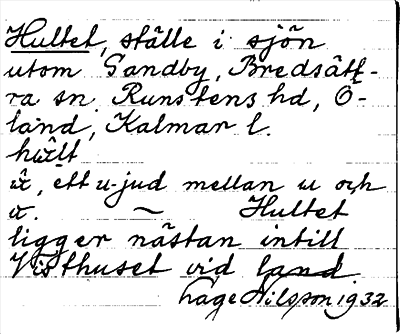 Hultet, ställe i sjön
utom Sandby, Bredsätt-
ra sn. Runstens hd, Ö-
land, Kalmar l.
ett u-jud mellan u och
Hultet
ligger nästan intill
Visthuset vid land.
Nilsson 1932